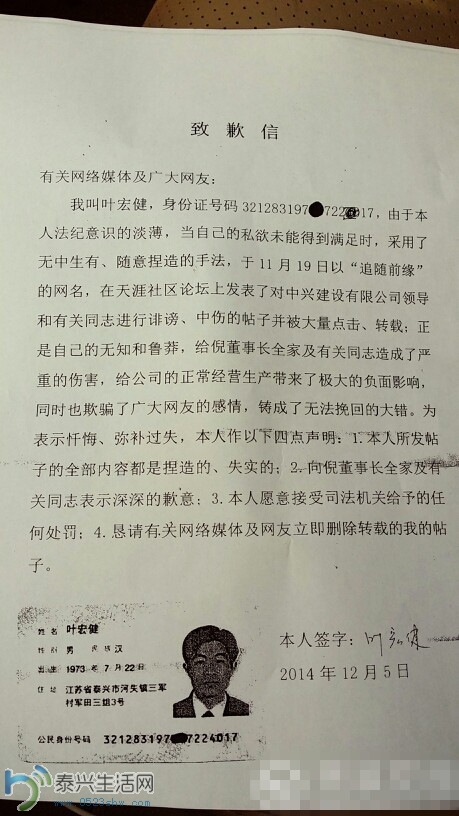 致歉信
有关网络媒体及广大网友：
我叫叶宏健，身份证号码 32128319722017，由于本
人法纪意识的淡薄，当自己的私欲未能得到满足时，采用了
无中生有、随意捏造的手法，于11月19日以“追随前缘”
的网名，在天涯社区论坛上发表了对中兴建设有限公司领导
和有关同志进行诽谤、中伤的帖子并被大量点击、转载；正
是自己的无知和鲁莽，给倪董事长全家及有关同志造成了严
重的伤害，给公司的正常经营生产带来了极大的负面影响，
同时也欺骗了广大网友的感情，铸成了无法挽回的大错。为
表示忏悔、弥补过失，本人作以下四点声明：1.本人所发帖
子的全部内容都是捏造的、失实的；2.向倪董事长全家及有
关同志表示深深的歉意；3.本人愿意接受司法机关给予的任
何处罚；4.恳请有关网络媒体及网友立即删除转载的我的帖
子。
姓名 叶宏健
性别 男 民族 汉
出生 1973年7月22日
住址 江苏省泰兴市河失镇三军
村军田三组3号
公民身份号码 321283197 7224017
本人签字：叶宏健
2014年12月5日
泰兴生活网
www.0523shw.com